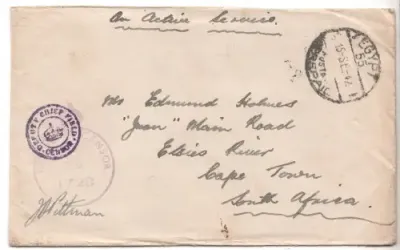 On Active Service.
EGYPT
55
POSTAGE PREPAID
Mr Edmund Holmes
"Jean" Main Road
Elsies River
Cape Town
South Africa.
DEPUTY CHIEF FIELD CENSOR